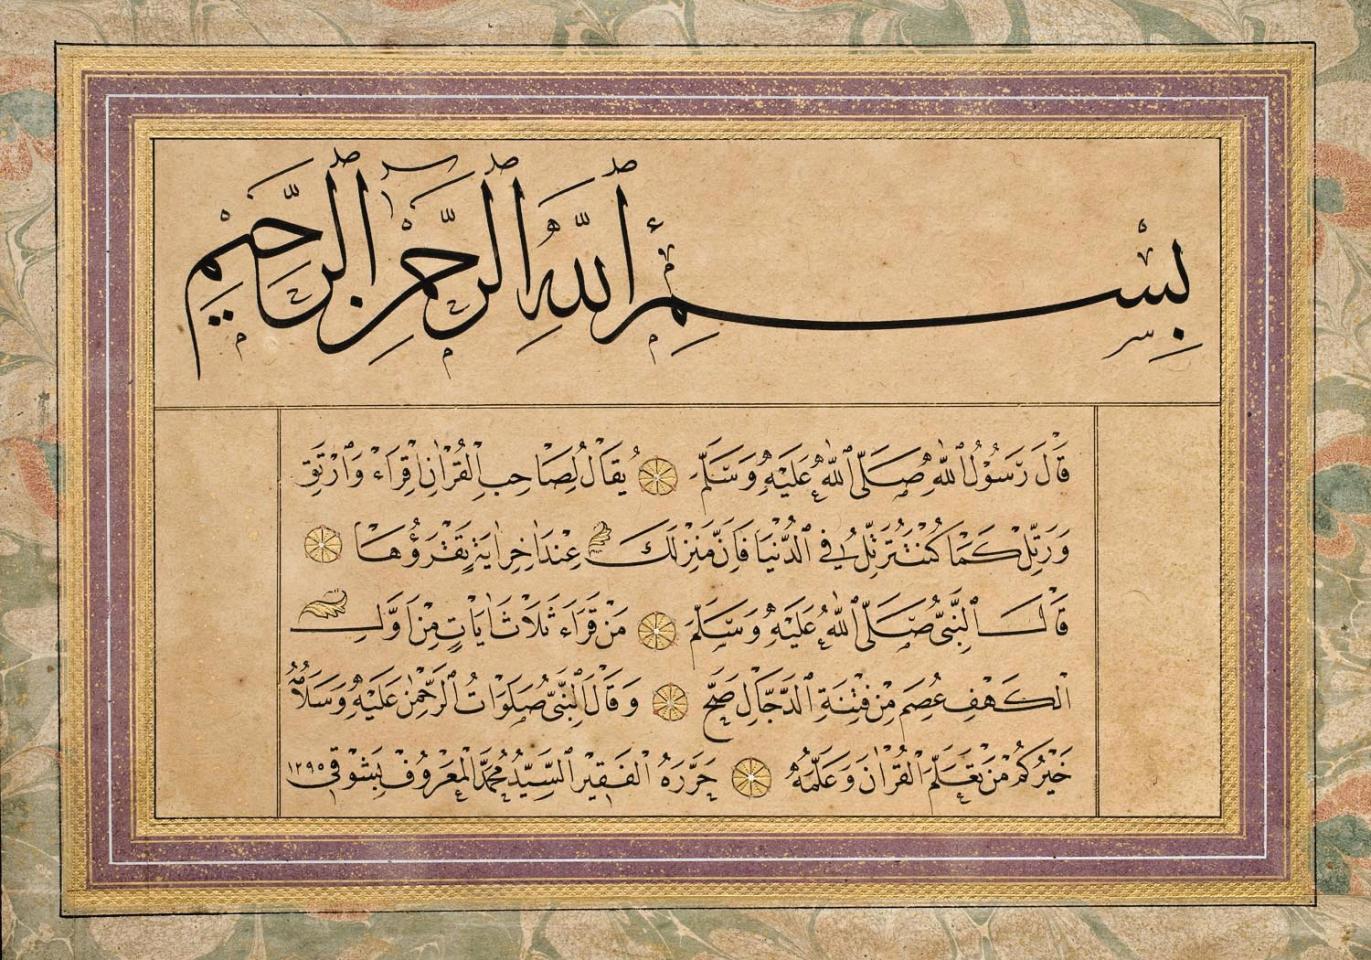 بِسْمِ ٱللَّهِ ٱلرَّحْمٰنِ ٱلرَّحِيمِ
قَالَ رَسُوْلُ اللّٰهِ صَلَّى اللّٰهُ عَلَيْهِ وَسَلَّمَ يُقَالُ لِصَاحِبِ الْقُرْاٰنِ اِقْرَاءْ وَارْتَقِ
وَرَتِّلْ كَمَا كُنْتَ تُرَتِّلُ فِي الدُّنْيَا فَاِنَّ مَنْزِلَكَ عِنْدَ اٰخِرِ اٰيَةٍ تَقْرَؤُهَا
قَالَ النَّبِىُّ صَلَّى اللّٰهُ عَلَيْهِ وَسَلَّمَ مَنْ قَرَاءَ ثَلَاثَ اٰيَاتٍ مِنْ اَوَّلِ
الْكَهْفِ عُصِمَ مِنْ فِتْنَةِ الدَّجَّالِ صَحَّ وَقَالَ النَّبِىُّ صَلَوَاتُ الرَّحْمٰنِ عَلَيْهِ وَسَلَامُهُ
خَيْرُكُمْ مَنْ تَعَلَّمَ الْقُرْاٰنَ وَعَلَّمَهُ حَرَّرَهُ الْفَقِيْرُ السَّيِّدُ مُحَمَّدُ الْمَعْرُوفُ بِشَوْقِى ١٢٩٥